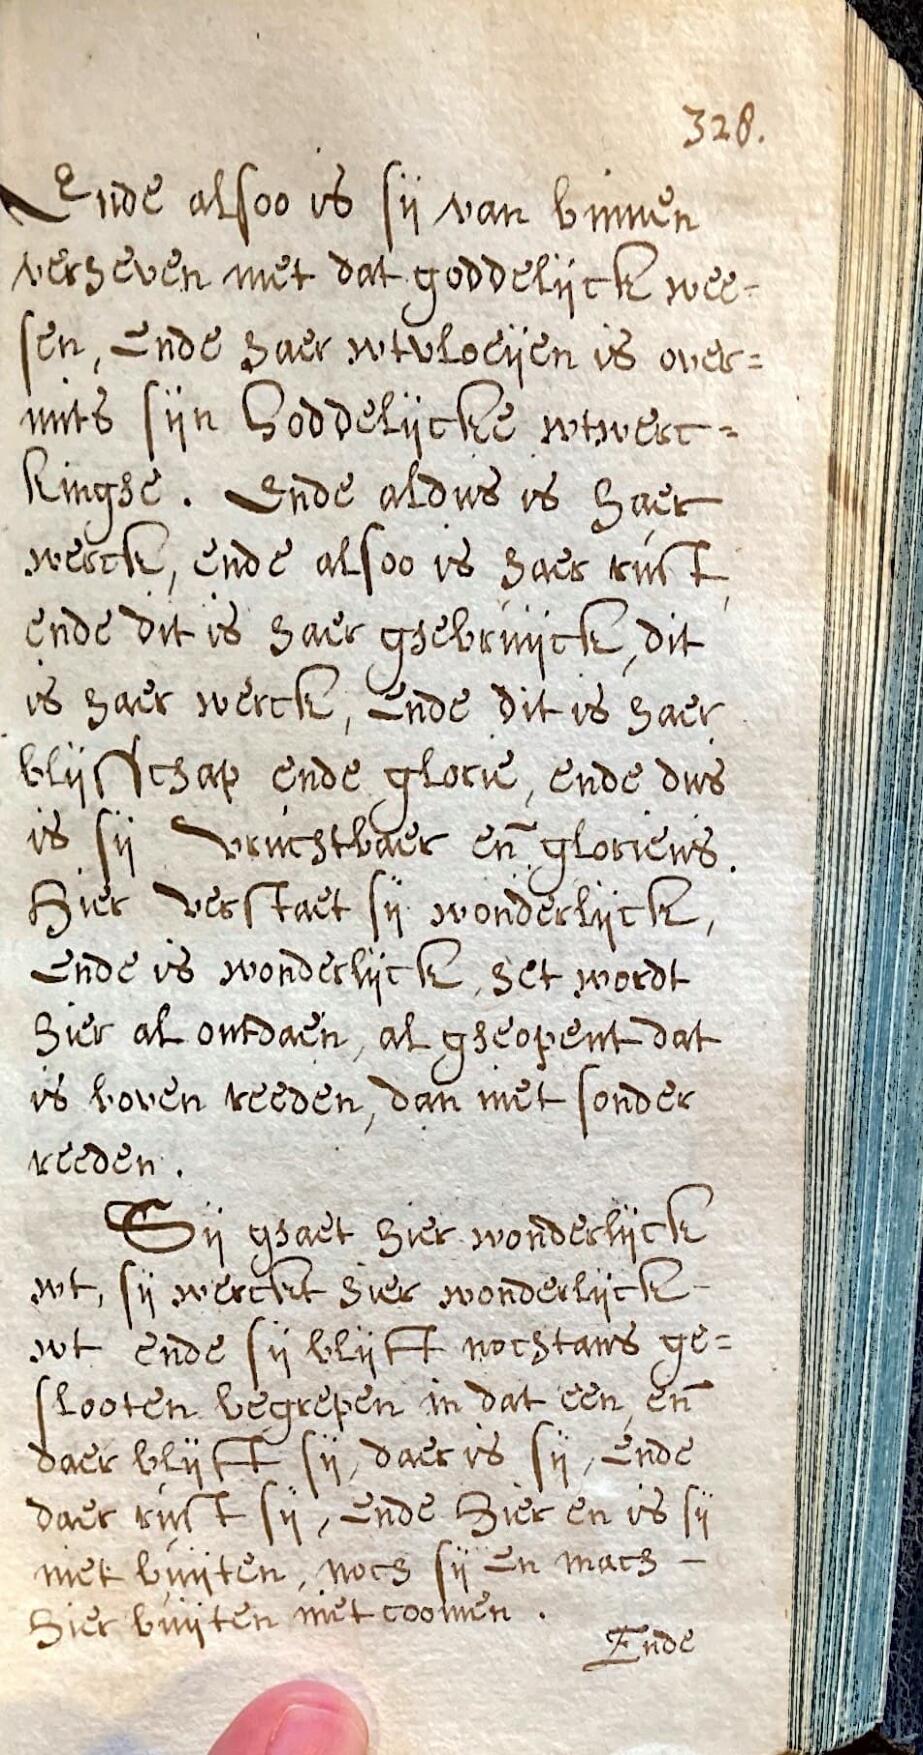 328.
Ende alsoo is sij van binnen
verheven met dat goddelijck wee=
sen, Ende haer wtvloeijen is over=
mits sijn Goddelijcke wtwerc=
kinghe. Ende aldus is haer
werck, ende alsoo is haer rust,
ende dit is haer ghebruijck, dit
is haer werck, Ende dit is haer
blijffschap ende glorie, ende dus
is sij vruchtbaer eñ glorieus.
Hier verstaet sij wonderlijck,
Ende is wonderlijck, het wordt
hier al ontdaen, al gheopent dat
is boven reeden, dan niet sonder
reeden.
Sij ghaet hier wonderlijck
wt, sij werckt hier wonderlijck-
wt ende sij blijft nochtans ge=
slooten begrepen in dat een, eñ
daer blijft sij, daer is sij, Ende
daer rust sij, Ende Hier en is sij
niet buijten, noch sij En mach -
hier buijten niet coomen.
Ende